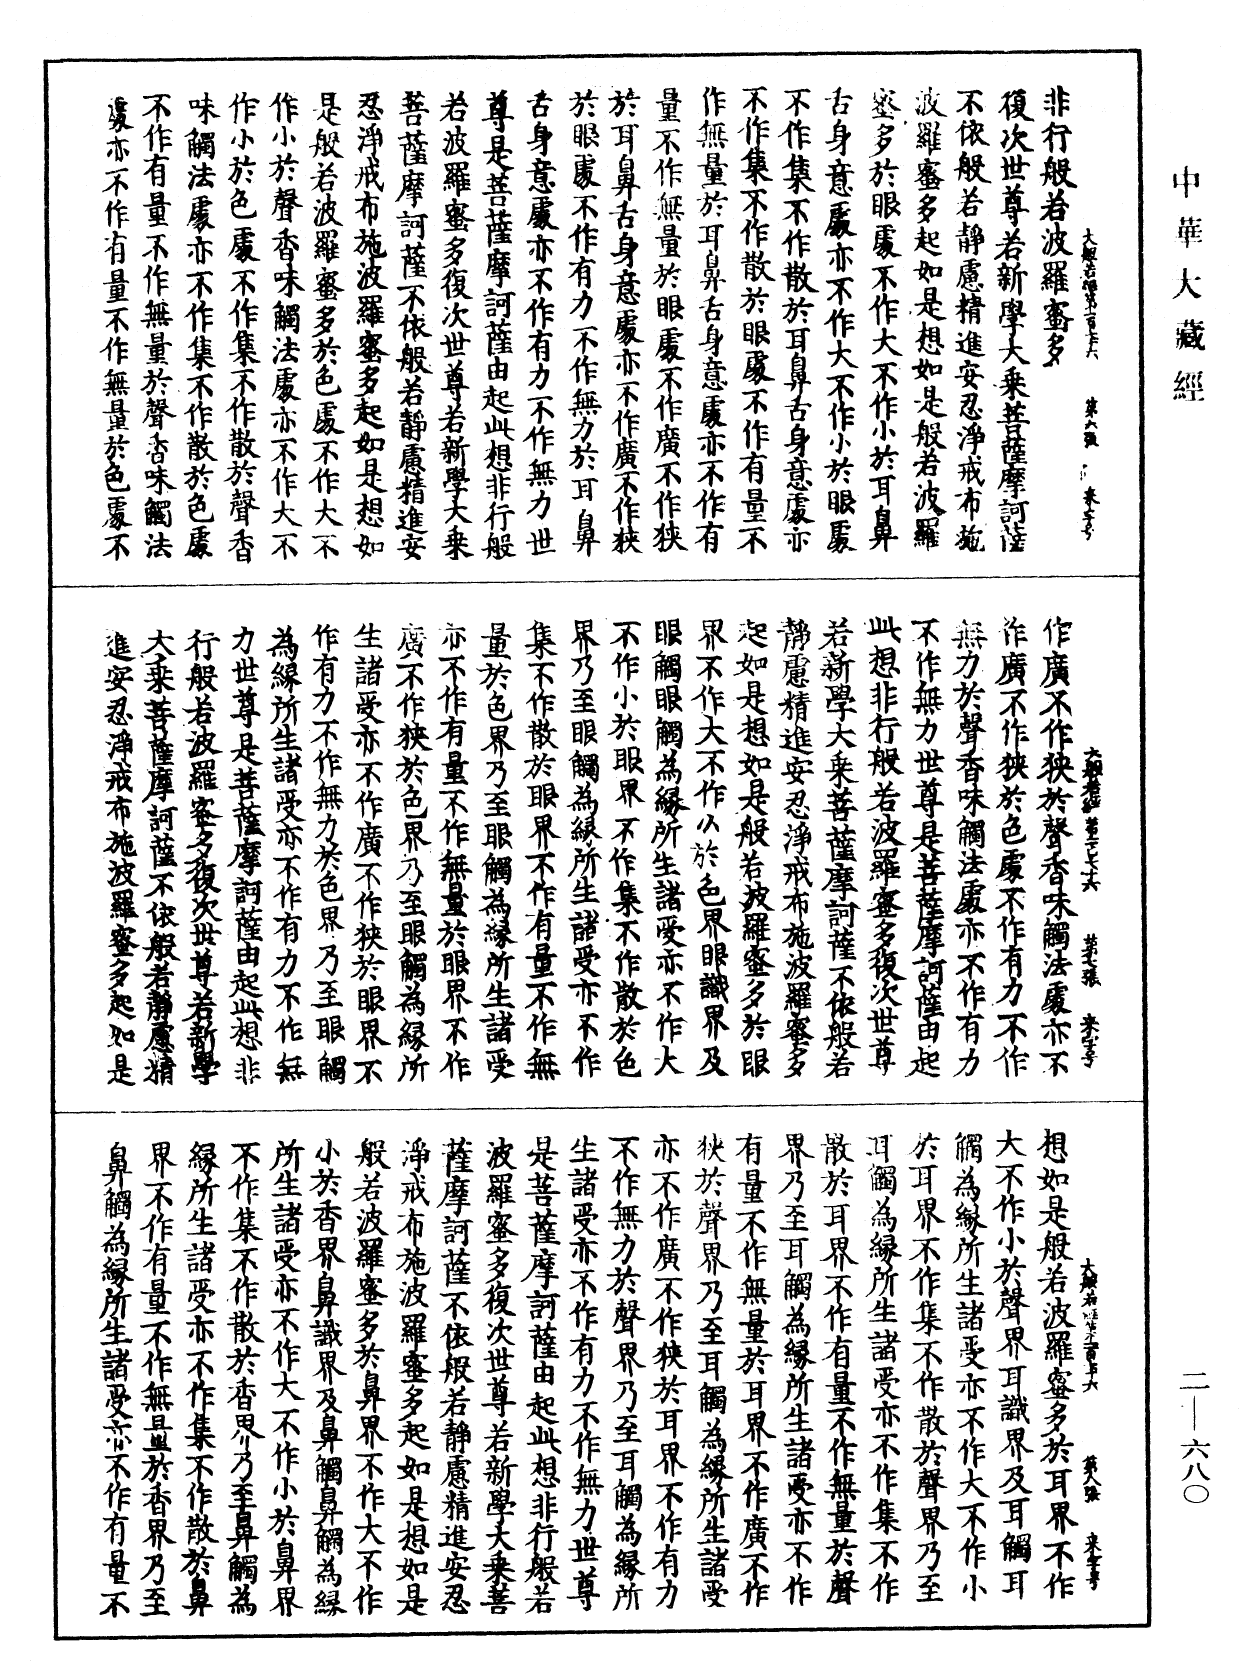 中華大藏經
二—六八〇
非行般若波羅蜜多
復次世尊若新學大乘菩薩摩訶薩
不依般若靜慮精進安忍淨戒布施
波羅蜜多起如是想如是般若波羅
蜜多於眼處不作大不作小於耳鼻
舌身意處亦不作大不作小於眼處
不作集不作散於耳鼻舌身意處亦
不作集不作散於眼處不作有量不
作無量於耳鼻舌身意處亦不作有
量不作無量於眼處不作廣不作狹
於耳鼻舌身意處亦不作廣不作狹
於眼處不作有力不作無力於耳鼻
舌身意處亦不作有力不作無力世
尊是菩薩摩訶薩由起此想非行般
若波羅蜜多復次世尊若新學大乘
菩薩摩訶薩不依般若靜慮精進安
忍淨戒布施波羅蜜多起如是想如
是般若波羅蜜多於色處不作大不
作小於聲香味觸法處亦不作大不
作小於色處不作集不作散於聲香
味觸法處亦不作集不作散於色處
不作有量不作無量於聲香味觸法
處亦不作有量不作無量於色處不
作廣不作狹於聲香味觸法處亦不
作廣不作狹於色處不作有力不作
無力於聲香味觸法處亦不作有力
不作無力世尊是菩薩摩訶薩由起
此想非行般若波羅蜜多復次世尊
若新學大乘菩薩摩訶薩不依般若
靜慮精進安忍淨戒布施波羅蜜多
起如是想如是般若波羅蜜多於眼
界不作大不作小於色界眼識界及
眼觸眼觸為緣所生諸受亦不作大
不作小於眼界不作集不作散於色
界乃至眼觸為緣所生諸受亦不作
集不作散於眼界不作有量不作無
量於色界乃至眼觸為緣所生諸受
亦不作有量不作無量於眼界不作
廣不作狹於色界乃至眼觸為緣所
生諸受亦不作廣不作狹於眼界不
作有力不作無力於色界乃至眼觸
為緣所生諸受亦不作有力不作無
力世尊是菩薩摩訶薩由起此想非
行般若波羅蜜多復次世尊若新學
大乘菩薩摩訶薩不依般若靜慮精
進安忍淨戒布施波羅蜜多起如是
想如是般若波羅蜜多於耳界不作
大不作小於聲界耳識界及耳觸耳
觸為緣所生諸受亦不作大不作小
於耳界不作集不作散於聲界乃至
耳觸為緣所生諸受亦不作集不作
散於耳界不作有量不作無量於聲
界乃至耳觸為緣所生諸受亦不作
有量不作無量於耳界不作廣不作
狹於聲界乃至耳觸為緣所生諸受
亦不作廣不作狹於耳界不作有力
不作無力於聲界乃至耳觸為緣所
生諸受亦不作有力不作無力世尊
是菩薩摩訶薩由起此想非行般若
波羅蜜多復次世尊若新學大乘菩
薩摩訶薩不依般若靜慮精進安忍
淨戒布施波羅蜜多起如是想如是
般若波羅蜜多於鼻界不作大不作
小於香界鼻識界及鼻觸鼻觸為緣
所生諸受亦不作大不作小於鼻界
不作集不作散於香界乃至鼻觸為
緣所生諸受亦不作集不作散於鼻
界不作有量不作無量於香界乃至
鼻觸為緣所生諸受亦不作有量不